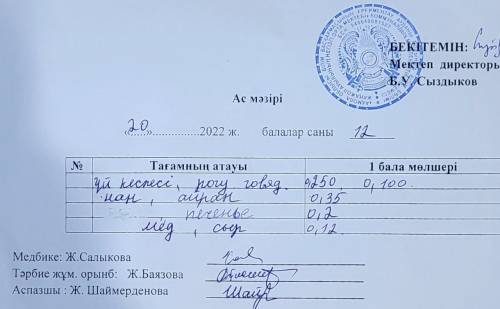 БЕКІТЕМІН:
Мектеп директоры
Б.У. Сыздыков
Ас мәзірі
«20»..............2022 ж. балалар саны 12
№ Тағамның атауы 1 бала мөлшері
үй кеспесі, рогу говяд. 0,250, 0,100
нан, айран 0,35
печенье 0,2
мёд, сыр 0,12
Медбике: Ж.Салыкова
Тәрбие жұм. орынб: Ж.Баязова
Аспазшы : Ж. Шаймерденова